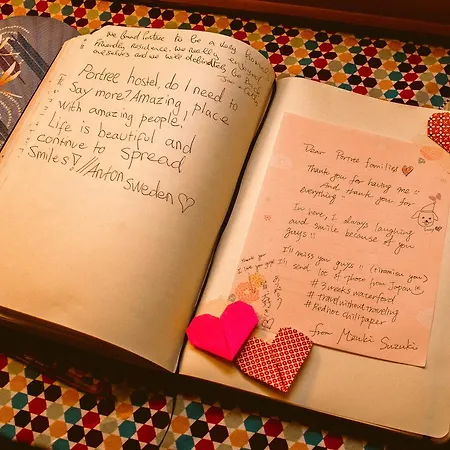 we found Portree to be a very
friendly residence. we really enjoyed
ourselves and we will definitely be
Portree hostel, do I need to
Say more? Amazing place
with amazing people.
Life is beautiful and
continue to spread
Smiles ♡ //Anton Sweden ♡
Dear Portree families ♡
Thank you for having me !!
And thank you for
everything"
In here, I always laughing
and smile because of you
guys !!
I'll miss you guys !! (tiramisu you)
I'll send lot of photo from Japan
# 3weeks waterford
# travelwithouttraveling
# Redhot chilipaper
from Mzuki Suzuki
Thank you
I love you guys